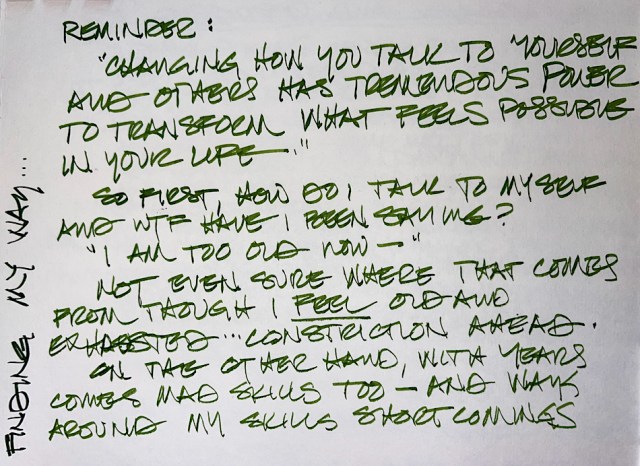 REMINDER:
"CHANGING HOW YOU TALK TO YOURSELF
AND OTHERS HAS TREMENDOUS POWER
TO TRANSFORM WHAT FEELS POSSIBLE
IN YOUR LIFE."
SO FIRST, HOW DO I TALK TO MYSELF
AND WTF HAVE I BEEN SAYING?
"I AM TOO OLD NOW—"
NOT EVEN SURE WHERE THAT COMES
FROM THOUGH I FEEL OLD AND
EXHAUSTED... CONSTRICTION AHEAD.
ON THE OTHER HAND, WITH YEARS
COMES MAD SKILLS TOO — AND WAYS
AROUND MY SKILLS SHORTCOMINGS
FINDING MY WAY...